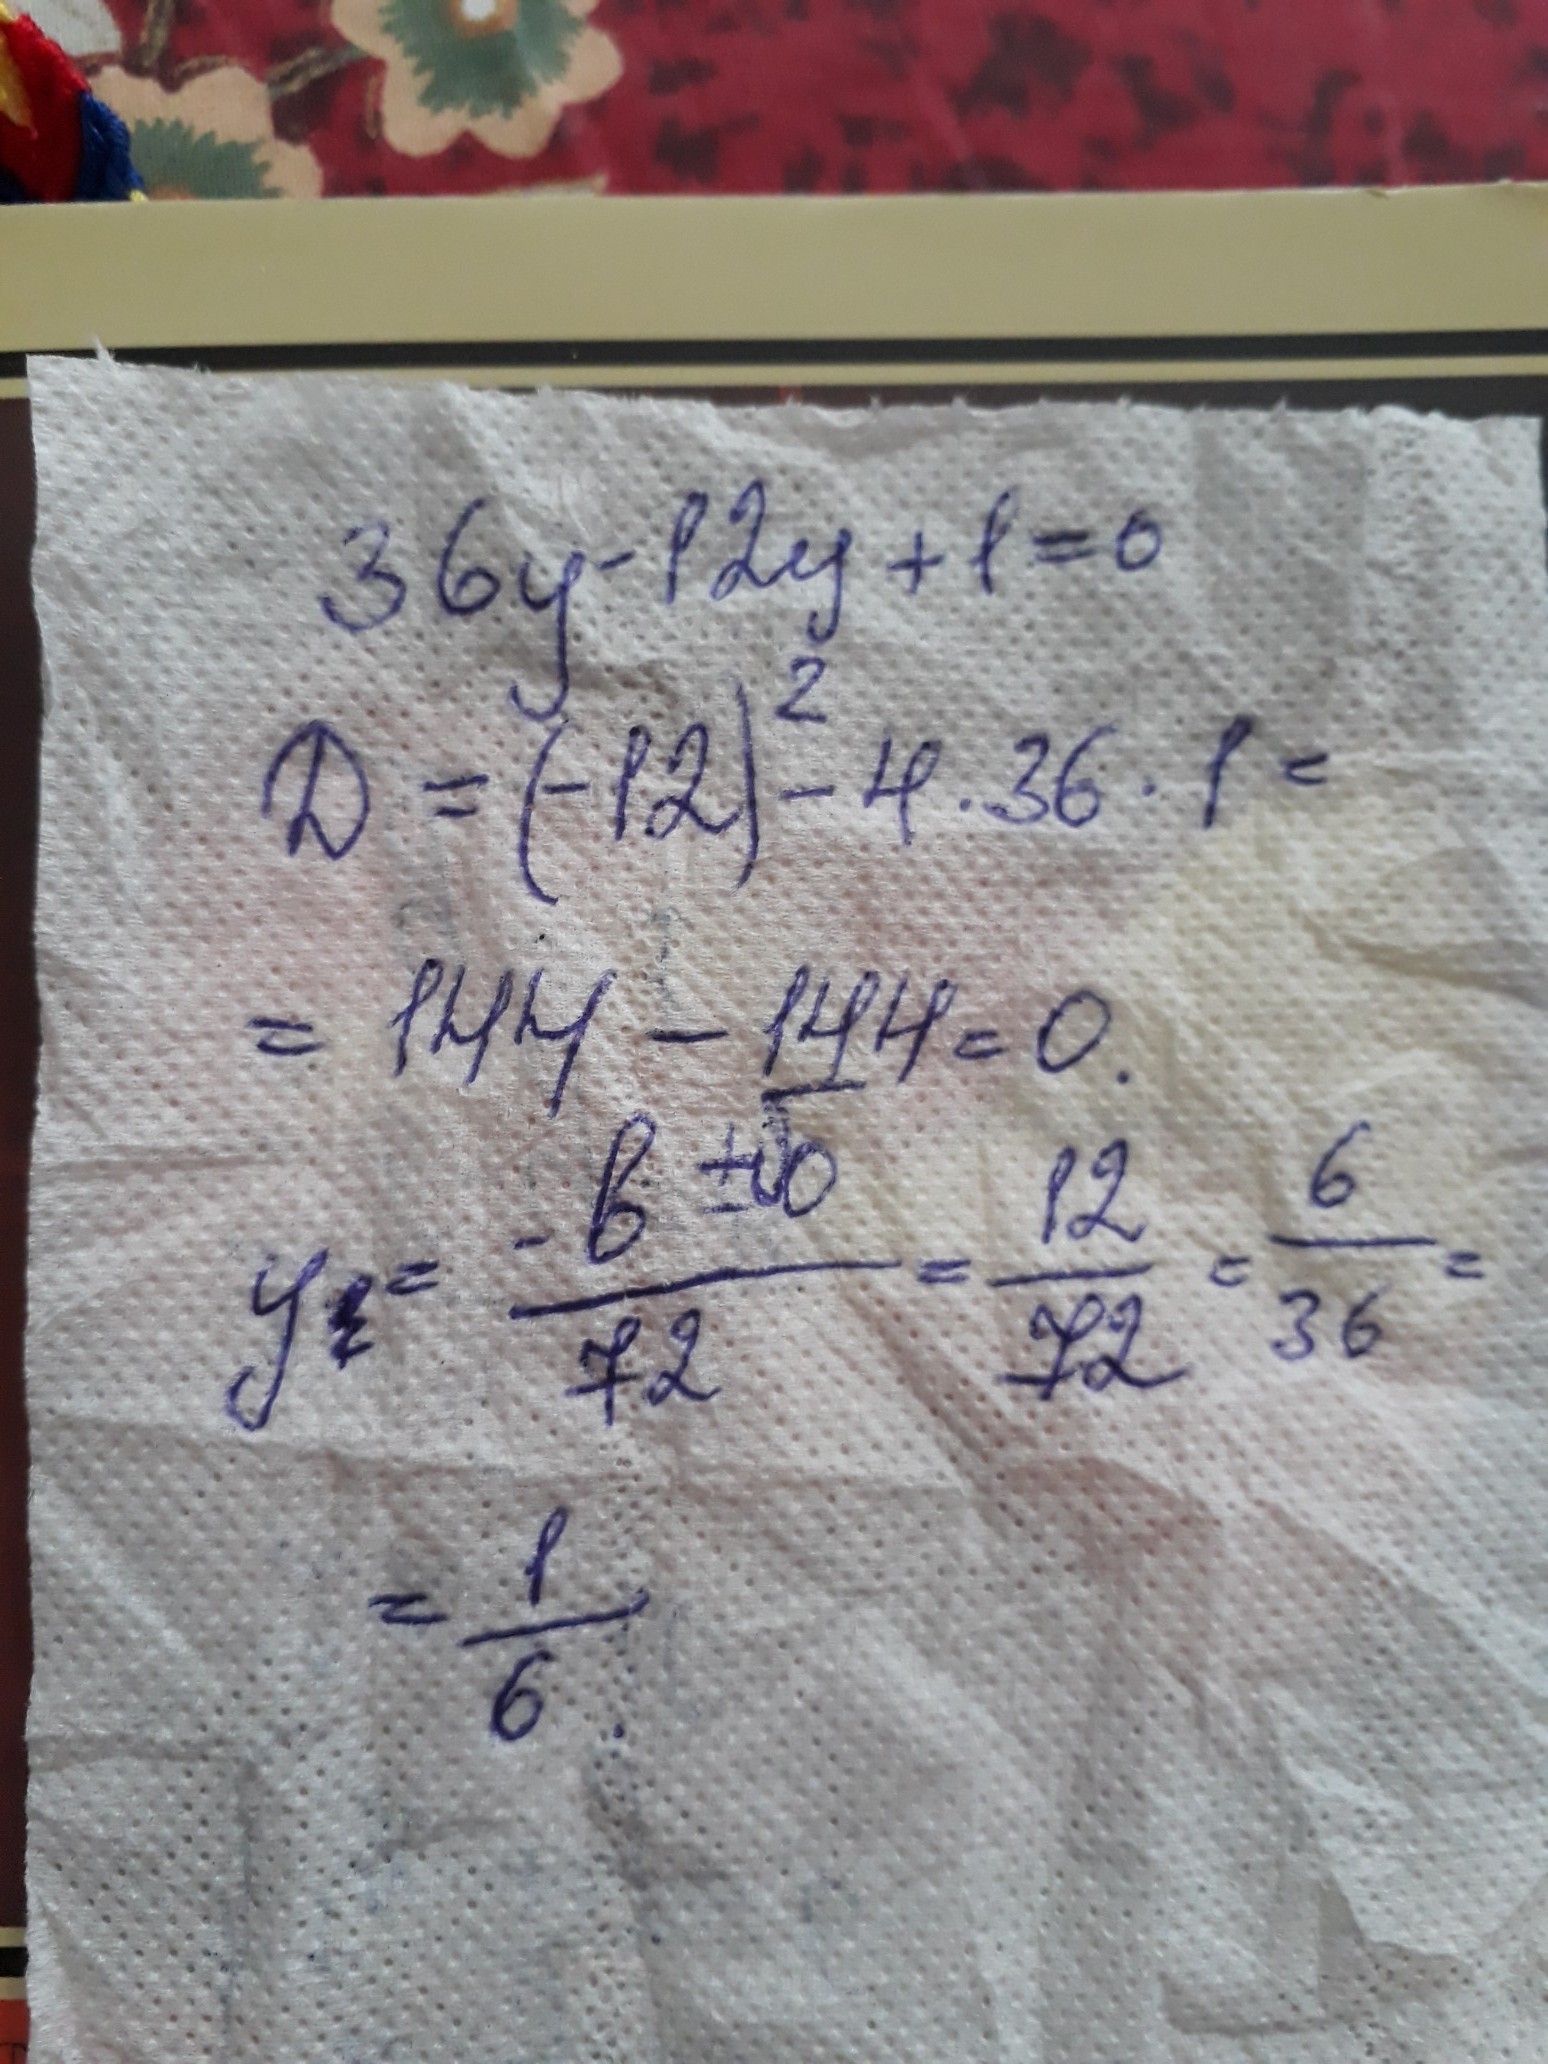 36y-12y+1=0
D=(-12)²-4·36·1=
=144-144=0.
y₁=(-b±√0)/72=12/72=6/36=
=1/6.